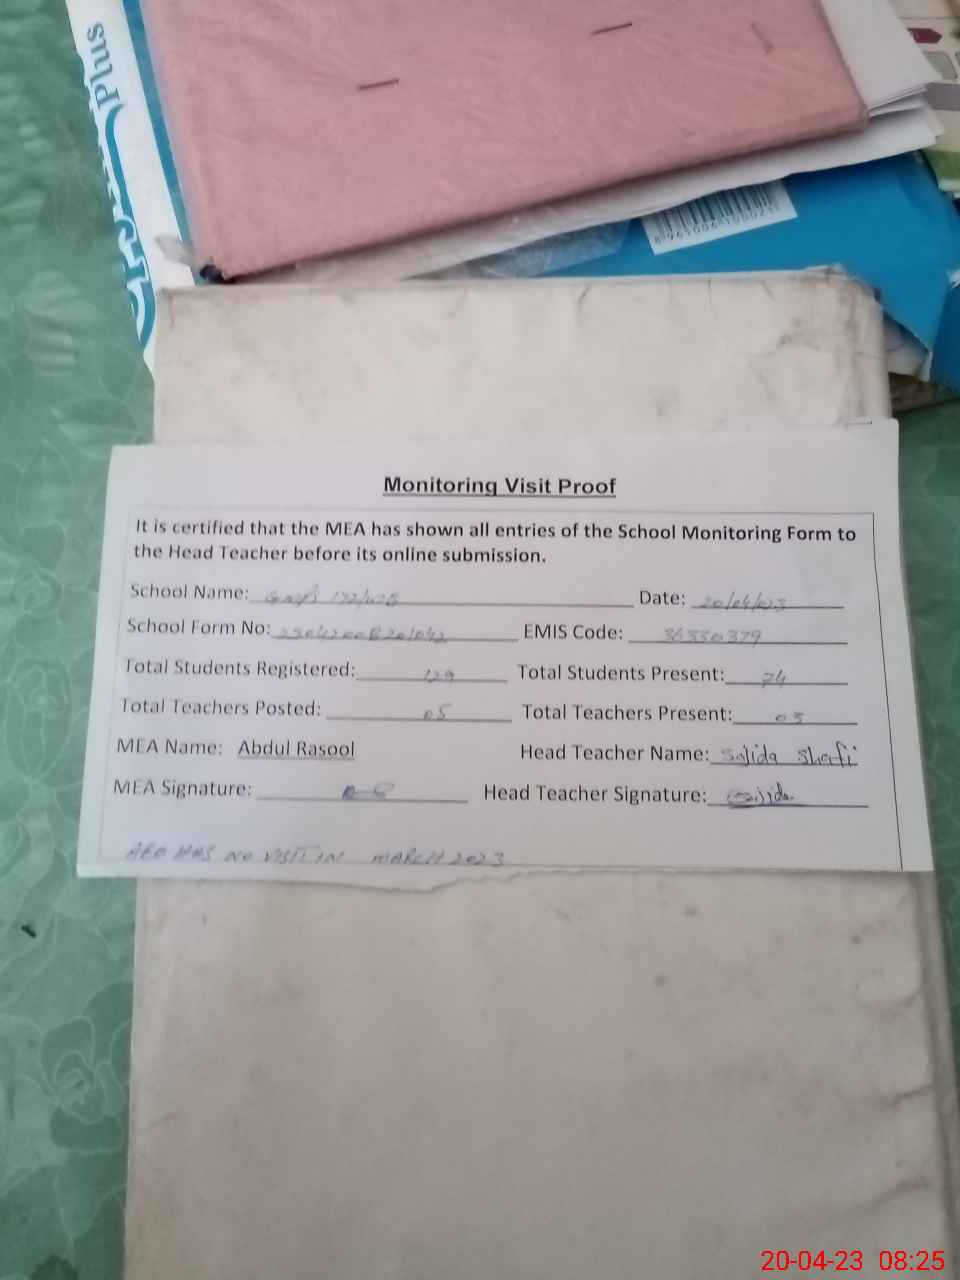 Plus
Monitoring Visit Proof
It is certified that the MEA has shown all entries of the School Monitoring Form to
the Head Teacher before its online submission.
School Name: Date: 20/04/023
School Form No: EMIS Code: 36330379
Total Students Registered: 129 Total Students Present: 74
Total Teachers Posted: 05 Total Teachers Present: 05
MEA Name: Abdul Rasool Head Teacher Name: Sajida Shafi
MEA Signature: Head Teacher Signature: Sajida
AEO HAS NO VISIT IN MARCH 2023
20-04-23 08:25